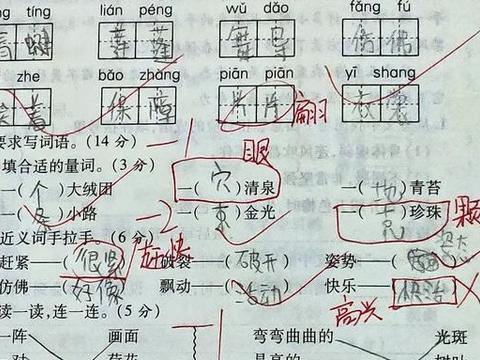 tíng lián péng wǔ dǎo fǎng fú
舞蹈 仿佛
zhe bǎo zhàng piān piān yī shang
着 保障 片片 翩 衣裳
要求写词语。(14 分) -1
填合适的量词。(3 分) 眼
一(个)大绒团 一(穴)清泉 一(地)青苔
一(条)小路 -2 一(束)金光 一(克)珍珠 颗
近义词手拉手。(6 分)
赶紧——(很紧) 赶快 破裂——(破开) 姿势——( 姿态
仿佛——(好像) 飘动——(活动) 快乐——(快活)
读一读,连一连。(5 分) 高兴
一阵 画面 弯弯曲曲的 光斑